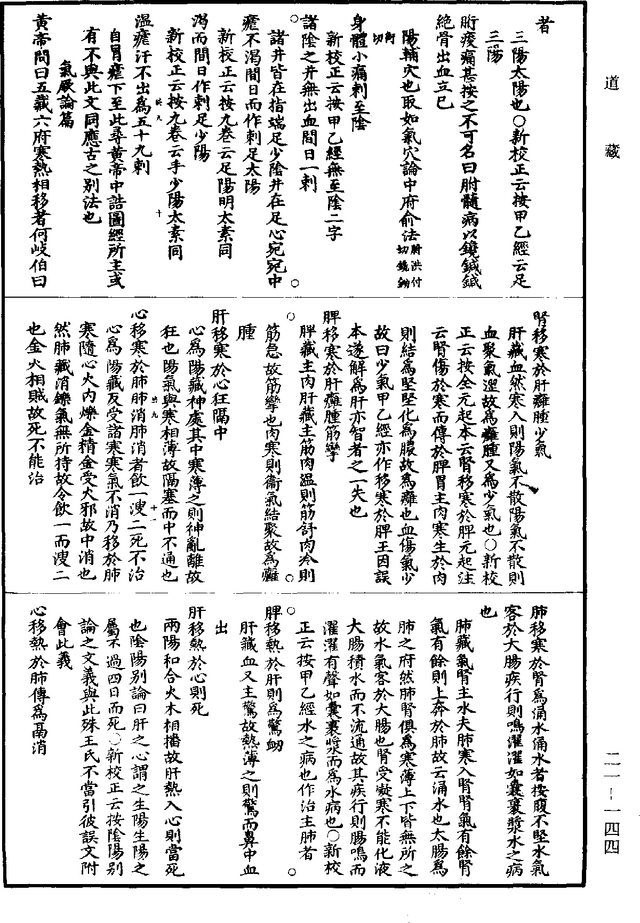 道藏
者
三陽太陽也○新校正云按甲乙經云足
三陽
䯒痠痛甚按之不可名曰胕髓病以鑱鍼鍼
絕骨出血立已
陽輔穴也取如氣穴論中府俞法胕洪付切鑱鉏
銜切
身體小痛刺至陰
新校正云按甲乙經無至陰二字
諸陰之井無出血間日一刺
諸井皆在指端足少陰井在足心宛宛中
瘧不渴間日而作刺足太陽
新校正云按九卷云足陽明太素同
渴而間日作刺足少陽
新校正云按九卷云手少陽太素同
溫瘧汗不出為五十九刺
自胃瘧下至此尋黃帝中誥圖經所主或
有不與此文同應古之別法也
氣厥論篇
黃帝問曰五藏六府寒熱相移者何岐伯曰
腎移寒於肝癰腫少氣
肝藏血然寒入則陽氣不散陽氣不散則
血聚氣澀故為癰腫又為少氣也○新校
正云按全元起本云腎移寒於脾元起注
云腎傷於寒而傳於脾脾主肉寒生於肉
則結為堅堅化為膿故為癰也血傷氣少
故曰少氣甲乙經亦作移寒於脾王因誤
本遂解為肝亦智者之一失也
脾移寒於肝癰腫筋攣
脾藏主肉肝藏主筋肉溫則筋舒肉冷則
筋急故筋攣也肉寒則衛氣結聚故為癰
腫
肝移寒於心狂隔中
心為陽藏神處其中寒薄之則神亂離故
狂也陽氣與寒相薄故隔塞而中不通也
心移寒於肺肺消肺消者飲一溲二死不治
心為陽藏反受諸寒寒氣不消乃移於肺
寒隨心火內爍金精金受火邪故中消也
然肺藏消鑠氣無所持故令飲一而溲二
也金火相賊故死不能治
肺移寒於腎為涌水涌水者按腹不堅水氣
客於大腸疾行則鳴濯濯如囊裹漿水之病
也
肺藏氣腎主水夫肺寒入腎腎氣有餘腎
氣有餘則上奔於肺故云涌水也大腸為
肺之府然肺腎俱為寒薄上下皆無所之
故水氣客於大腸也腎受凝寒不能化液
大腸積水而不流通故其疾行則腸鳴而
濯濯有聲如囊裹漿而為水病也○新校
正云按甲乙經水之病也作治主肺者
脾移熱於肝則為驚衄
肝藏血又主驚故熱薄之則驚而鼻中血
出
肝移熱於心則死
兩陽和合火木相燔故肝熱入心則當死
也陰陽別論曰肝之心謂之生陽生陽之
屬不過四日而死○新校正云按陰陽別
論之文義與此殊王氏不當引彼誤文附
會此義
心移熱於肺傳為鬲消
二一—一四四